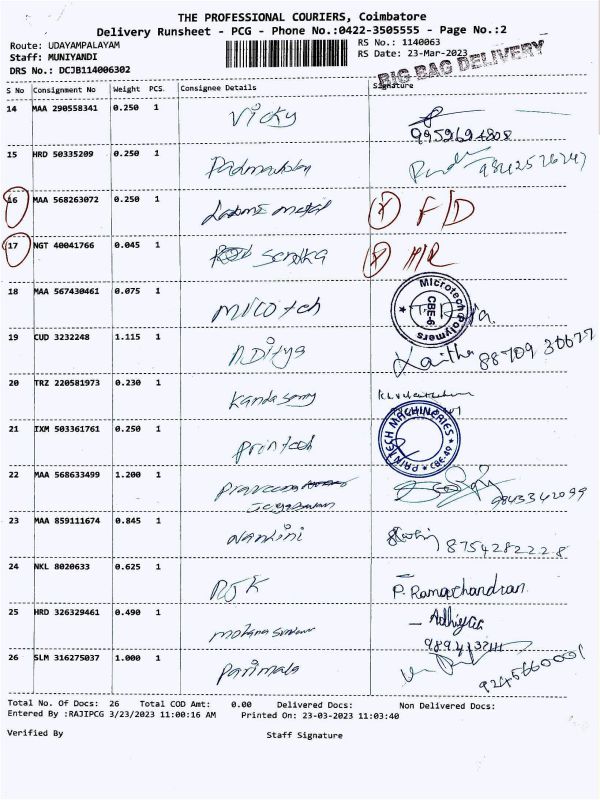 THE PROFESSIONAL COURIERS, Coimbatore
Delivery Runsheet - PCG - Phone No.:0422-3505555 - Page No.:2
Route: UDAYAMPALAYAM
Staff: MUNIYANDI
DRS No.: DCJB114006302
RS No.: 1140063
RS Date: 23-Mar-2023
BIG BAG DELIVERY
S No Consignment No Weight PCS. Consignee Details Signature
14 MAA 290558341 0.250 1 Vicky
15 HRD 50335209 0.250 1
16 MAA 568263072 0.250 1 F/D
17 NGT 40041766 0.045 1
18 MAA 567430461 0.075 1 Microtech Polymers CBE-6
19 CUD 3232248 1.115 1 Aditya
20 TRZ 220581973 0.230 1 Kanda samy
21 IXM 503361761 0.250 1 Printech PRINTECH MACHINERIES CBE-49
22 MAA 568633499 1.200 1 Praveen 9843342099
23 MAA 859111674 0.845 1 Nandini 8754282228
24 NKL 8020633 0.625 1 RJK P. Ramachandran
25 HRD 326329461 0.490 1
26 SLM 316275037 1.000 1 Parimala
Total No. Of Docs: 26 Total COD Amt: 0.00 Delivered Docs: Non Delivered Docs:
Entered By :RAJIPCG 3/23/2023 11:00:16 AM Printed On: 23-03-2023 11:03:40
Verified By Staff Signature